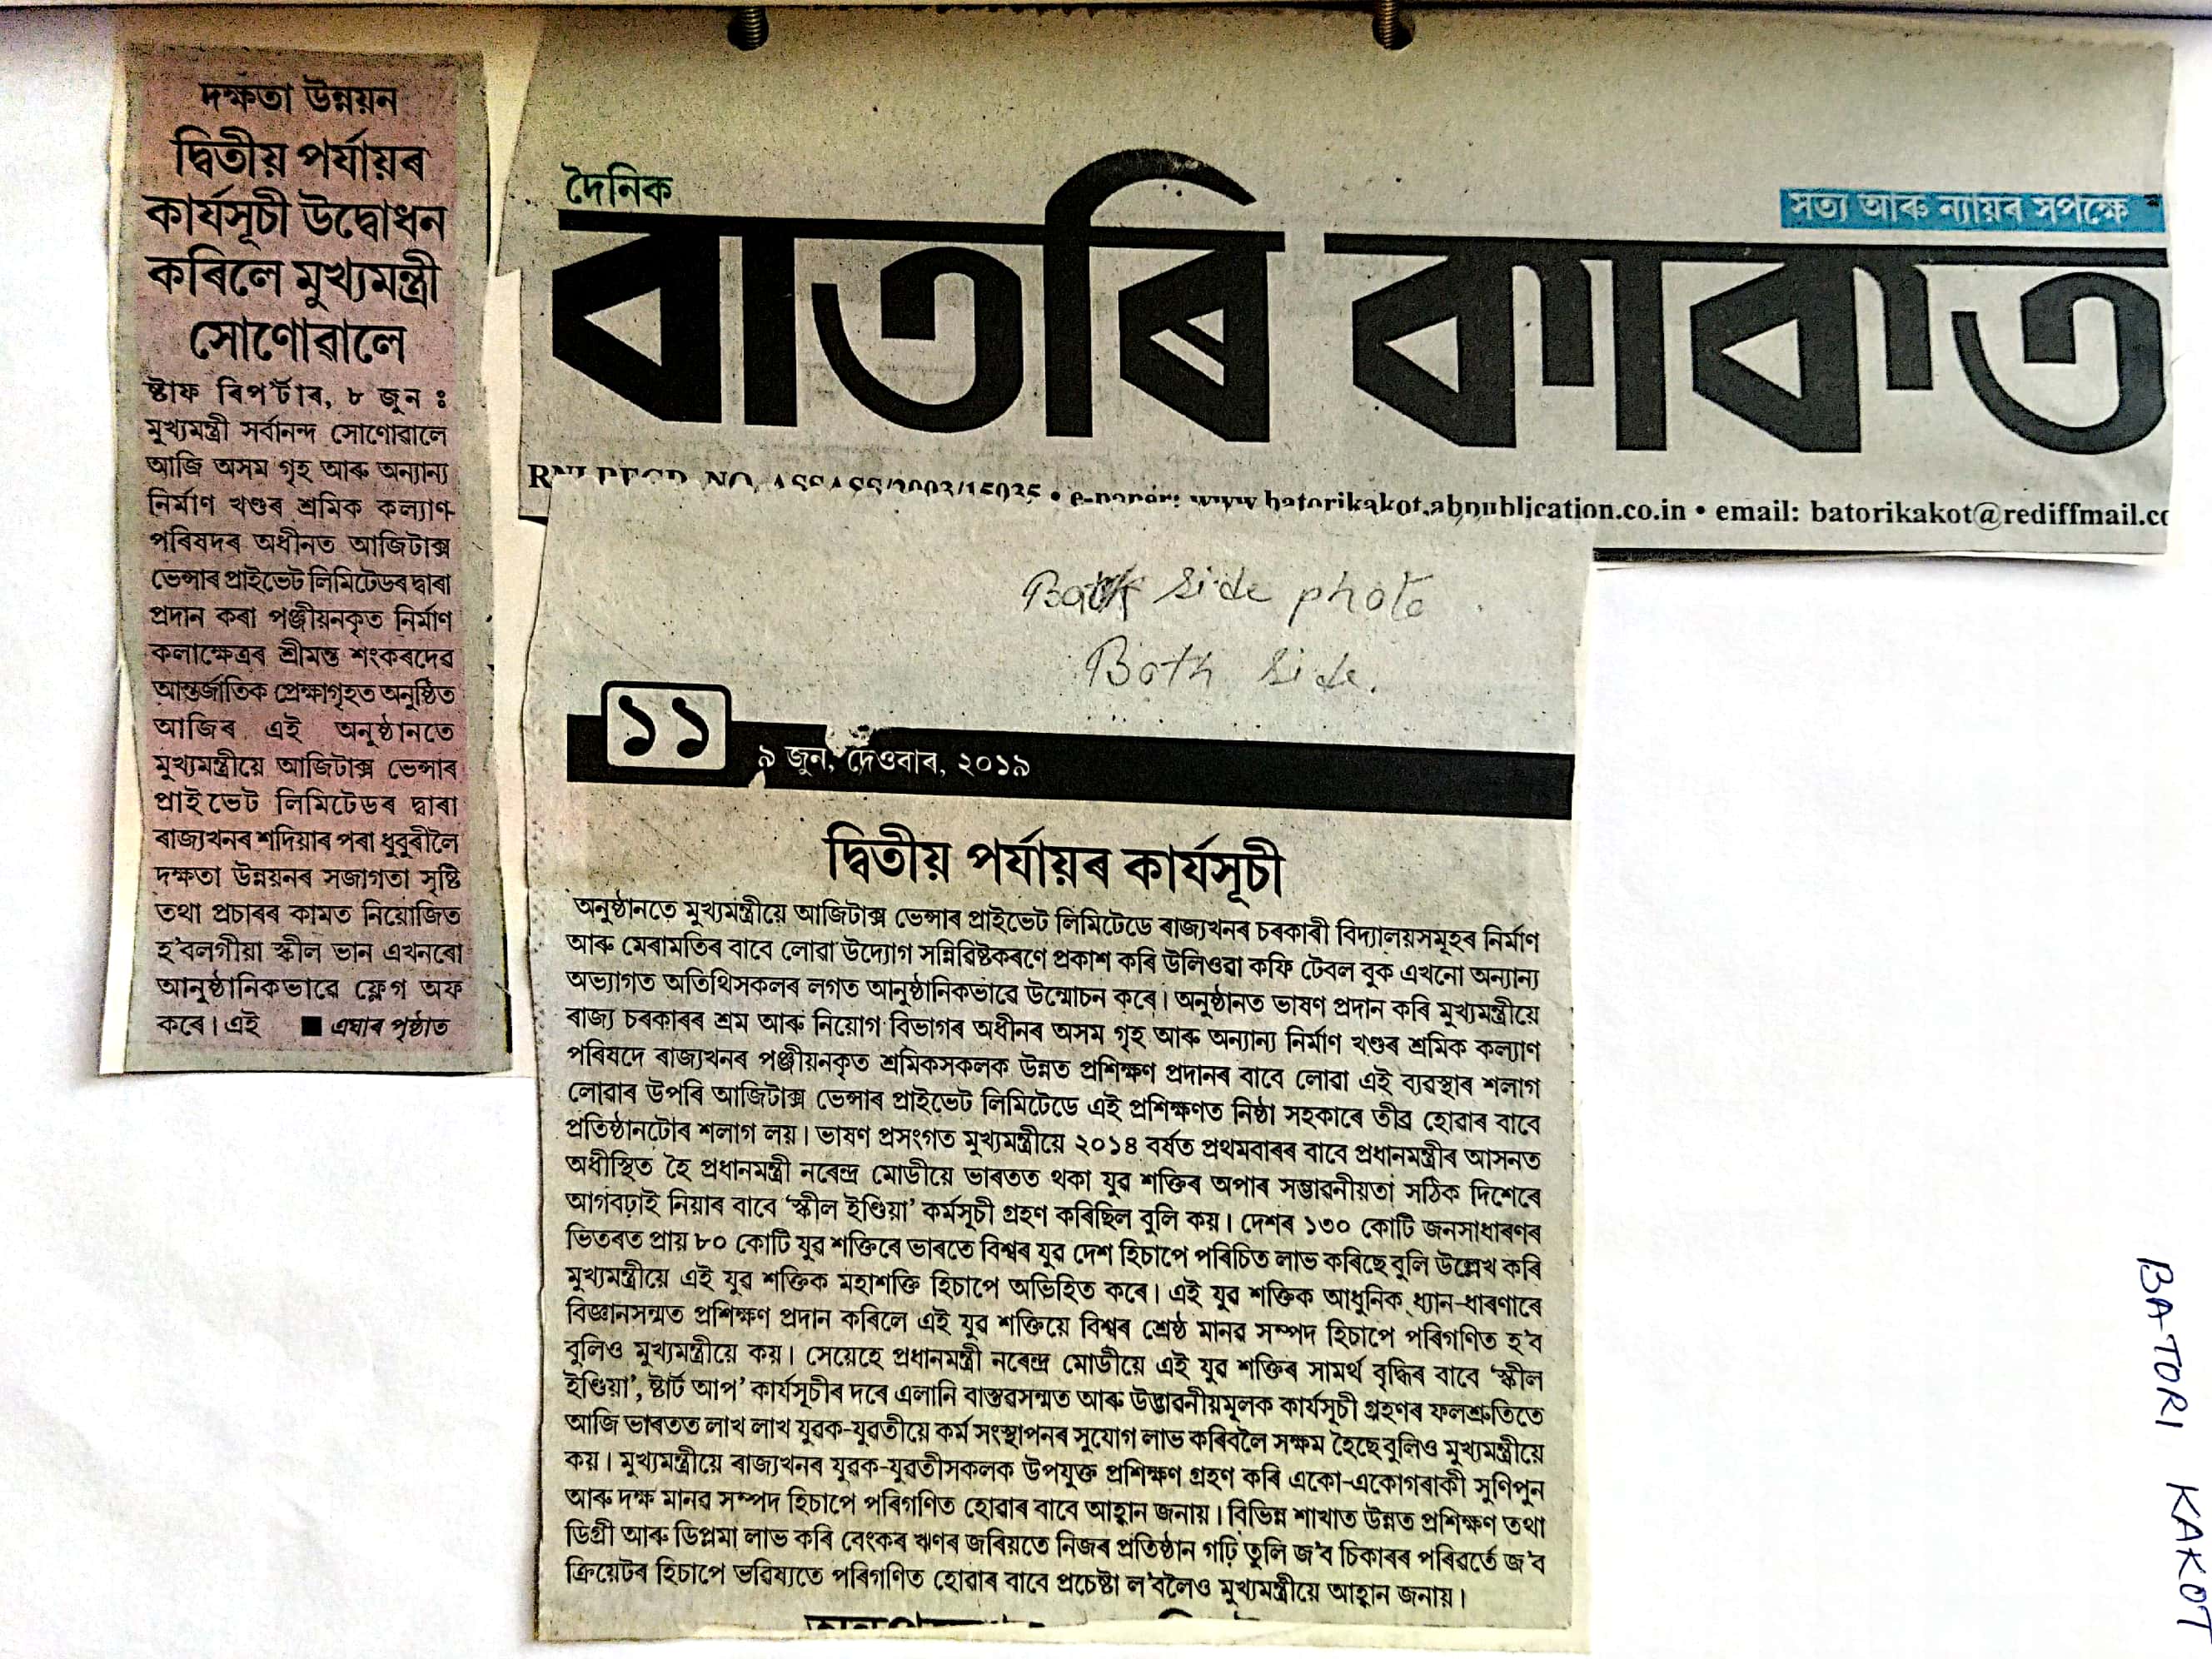 দক্ষতা উন্নয়ন
দ্বিতীয় পৰ্যায়ৰ
কাৰ্যসূচী উদ্বোধন
কৰিলে মুখ্যমন্ত্ৰী
সোণোৱালে
ষ্টাফ ৰিপ'ৰ্টাৰ, ৮ জুন :
মুখ্যমন্ত্ৰী সৰ্বানন্দ সোণোৱালে
আজি অসম গৃহ আৰু অন্যান্য
নিৰ্মাণ খণ্ডৰ শ্ৰমিক কল্যাণ-
পৰিষদৰ অধীনত আজিটাক্স
ভেন্সাৰ প্ৰাইভেট লিমিটেডৰ দ্বাৰা
প্ৰদান কৰা পঞ্জীয়নকৃত নিৰ্মাণ
কলাক্ষেত্ৰৰ শ্ৰীমন্ত শংকৰদেৱ
আন্তৰ্জাতিক প্ৰেক্ষাগৃহত অনুষ্ঠিত
আজিৰ এই অনুষ্ঠানতে
মুখ্যমন্ত্ৰীয়ে আজিটাক্স ভেন্সাৰ
প্ৰাইভেট লিমিটেডৰ দ্বাৰা
ৰাজ্যখনৰ শদিয়াৰ পৰা ধুবুৰীলৈ
দক্ষতা উন্নয়নৰ সজাগতা সৃষ্টি
তথা প্ৰচাৰৰ কামত নিয়োজিত
হ'বলগীয়া স্কীল ভান এখনৰো
আনুষ্ঠানিকভাৱে ফ্লেগ অফ
কৰে। এই ■ এঘাৰ পৃষ্ঠাত
দৈনিক
সত্য আৰু ন্যায়ৰ সপক্ষে
বাতৰি কাকত
RNI REGD. NO. ASSASS/2003/15035 • e-paper: www.batorikakot.abpublication.co.in • email: batorikakot@rediffmail.co
Both side photo
Both side.
১১
৯ জুন, দেওবাৰ, ২০১৯
দ্বিতীয় পৰ্যায়ৰ কাৰ্যসূচী
অনুষ্ঠানতে মুখ্যমন্ত্ৰীয়ে আজিটাক্স ভেন্সাৰ প্ৰাইভেট লিমিটেডে ৰাজ্যখনৰ চৰকাৰী বিদ্যালয়সমূহৰ নিৰ্মাণ
আৰু মেৰামতিৰ বাবে লোৱা উদ্যোগ সন্নিৱিষ্টকৰণে প্ৰকাশ কৰি উলিওৱা কফি টেবল বুক এখনো অন্যান্য
অভ্যাগত অতিথিসকলৰ লগত আনুষ্ঠানিকভাৱে উন্মোচন কৰে। অনুষ্ঠানত ভাষণ প্ৰদান কৰি মুখ্যমন্ত্ৰীয়ে
ৰাজ্য চৰকাৰৰ শ্ৰম আৰু নিয়োগ বিভাগৰ অধীনৰ অসম গৃহ আৰু অন্যান্য নিৰ্মাণ খণ্ডৰ শ্ৰমিক কল্যাণ
পৰিষদে ৰাজ্যখনৰ পঞ্জীয়নকৃত শ্ৰমিকসকলক উন্নত প্ৰশিক্ষণ প্ৰদানৰ বাবে লোৱা এই ব্যৱস্থাৰ শলাগ
লোৱাৰ উপৰি আজিটাক্স ভেন্সাৰ প্ৰাইভেট লিমিটেডে এই প্ৰশিক্ষণত নিষ্ঠা সহকাৰে তীব্ৰ হোৱাৰ বাবে
প্ৰতিষ্ঠানটোৰ শলাগ লয়। ভাষণ প্ৰসংগত মুখ্যমন্ত্ৰীয়ে ২০১৪ বৰ্ষত প্ৰথমবাৰৰ বাবে প্ৰধানমন্ত্ৰীৰ আসনত
অধীস্থিত হৈ প্ৰধানমন্ত্ৰী নৰেন্দ্ৰ মোডীয়ে ভাৰতত থকা যুৱ শক্তিৰ অপাৰ সম্ভাৱনীয়তা সঠিক দিশেৰে
আগবঢ়াই নিয়াৰ বাবে 'স্কীল ইণ্ডিয়া' কৰ্মসূচী গ্ৰহণ কৰিছিল বুলি কয়। দেশৰ ১৩০ কোটি জনসাধাৰণৰ
ভিতৰত প্ৰায় ৮০ কোটি যুৱ শক্তিৰে ভাৰতে বিশ্বৰ যুৱ দেশ হিচাপে পৰিচিত লাভ কৰিছে বুলি উল্লেখ কৰি
মুখ্যমন্ত্ৰীয়ে এই যুৱ শক্তিক মহাশক্তি হিচাপে অভিহিত কৰে। এই যুৱ শক্তিক আধুনিক ধ্যান-ধাৰণাৰে
বিজ্ঞানসন্মত প্ৰশিক্ষণ প্ৰদান কৰিলে এই যুৱ শক্তিয়ে বিশ্বৰ শ্ৰেষ্ঠ মানৱ সম্পদ হিচাপে পৰিগণিত হ'ব
বুলিও মুখ্যমন্ত্ৰীয়ে কয়। সেয়েহে প্ৰধানমন্ত্ৰী নৰেন্দ্ৰ মোডীয়ে এই যুৱ শক্তিৰ সামৰ্থ বৃদ্ধিৰ বাবে 'স্কীল
ইণ্ডিয়া', ষ্টাৰ্ট আপ' কাৰ্যসূচীৰ দৰে এলানি বাস্তৱসন্মত আৰু উদ্ভাৱনীয়মূলক কাৰ্যসূচী গ্ৰহণৰ ফলশ্ৰুতিতে
আজি ভাৰতত লাখ লাখ যুৱক-যুৱতীয়ে কৰ্ম সংস্থাপনৰ সুযোগ লাভ কৰিবলৈ সক্ষম হৈছে বুলিও মুখ্যমন্ত্ৰীয়ে
কয়। মুখ্যমন্ত্ৰীয়ে ৰাজ্যখনৰ যুৱক-যুৱতীসকলক উপযুক্ত প্ৰশিক্ষণ গ্ৰহণ কৰি একো-একোগৰাকী সুণিপুন
আৰু দক্ষ মানৱ সম্পদ হিচাপে পৰিগণিত হোৱাৰ বাবে আহ্বান জনায়। বিভিন্ন শাখাত উন্নত প্ৰশিক্ষণ তথা
ডিগ্ৰী আৰু ডিপ্লমা লাভ কৰি বেংকৰ ঋণৰ জৰিয়তে নিজৰ প্ৰতিষ্ঠান গঢ়ি তুলি জ'ব চিকাৰৰ পৰিৱৰ্তে জ'ব
ক্ৰিয়েটৰ হিচাপে ভৱিষ্যতে পৰিগণিত হোৱাৰ বাবে প্ৰচেষ্টা ল'বলৈও মুখ্যমন্ত্ৰীয়ে আহ্বান জনায়।
BATORI KAKOT